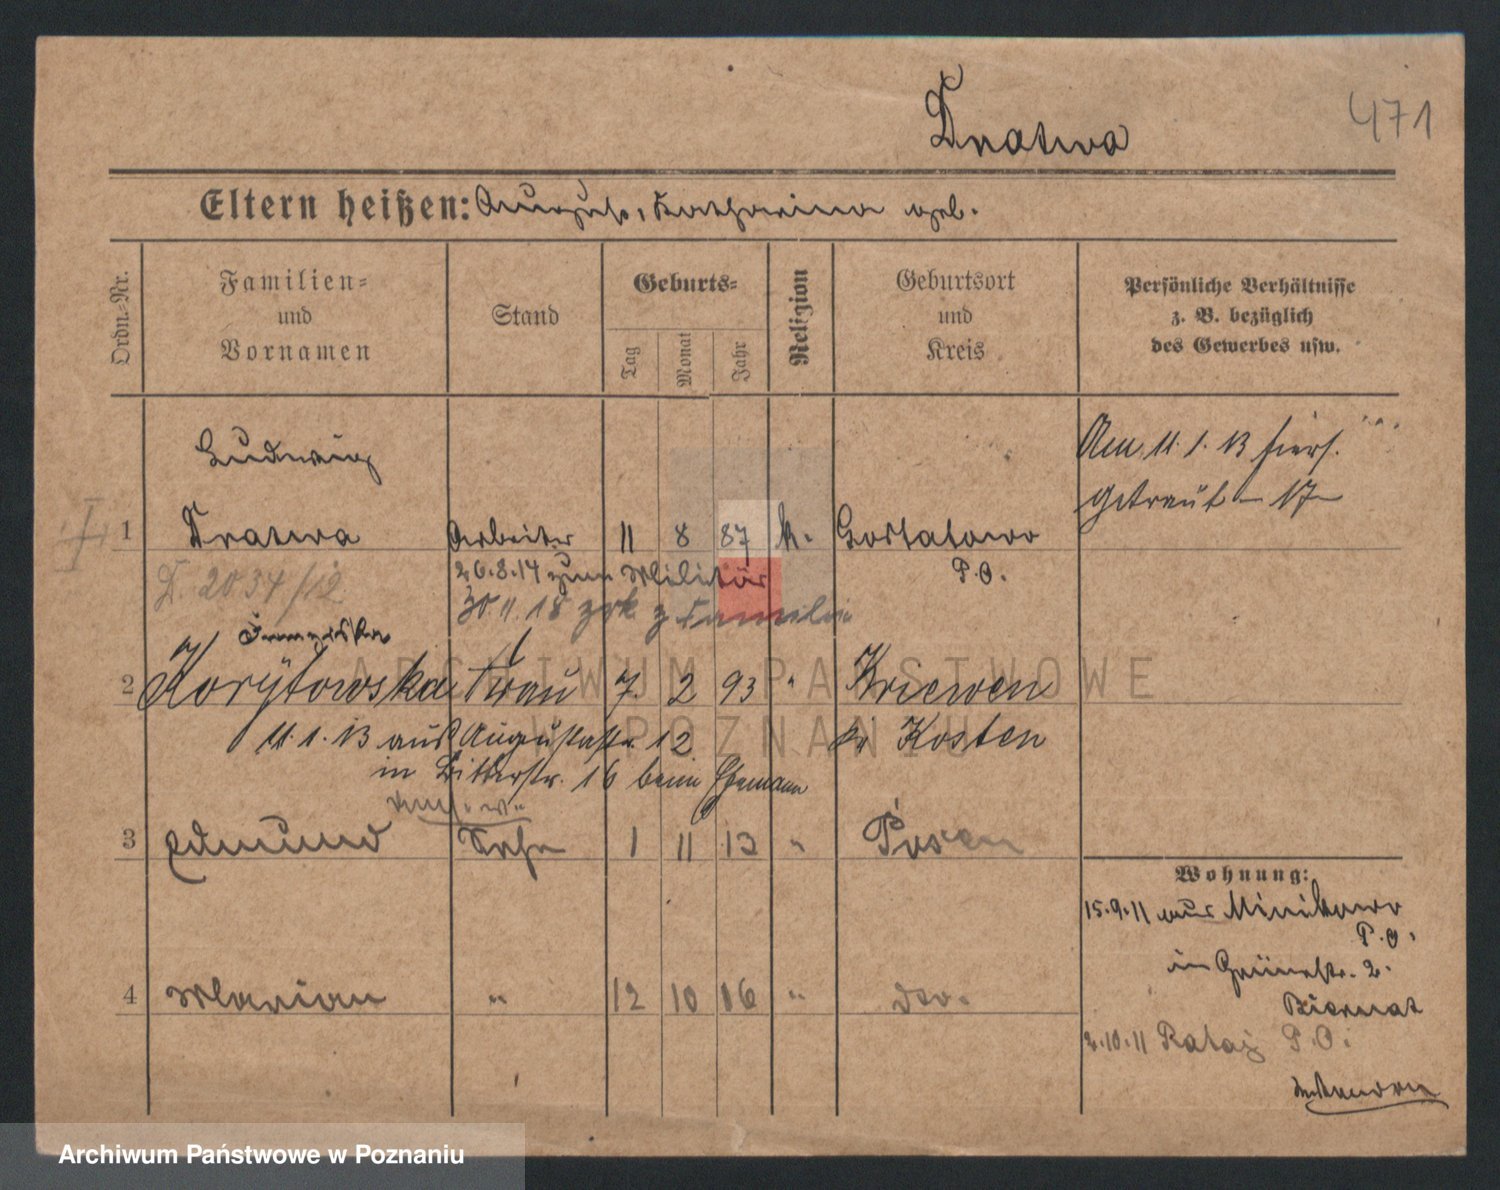 Dratwa
471
Eltern heißen: August, Katharina geb.
Ordn.-Nr.
Familien-
und
Vornamen
Stand
Geburts-
Tag
Monat
Jahr
Religion
Geburtsort
und
Kreis
Persönliche Verhältnisse
z. B. bezüglich
des Gewerbes usw.
Ludwig
Am 11.1.13 hiers.
getraut - 17-
1 Dratwa Arbeiter 11 8 87 k.
P.O.
D. 2034/12
26.8.14 zum Militär
30.11.18 zrk z Familie
2 Korytowska Frau 7. 2 93 " Kriewen
Kr Kosten
11.1.13 aus Augustastr. 12
in Bitterstr. 16 beim Ehemann
3 Edmund Sohn 1 11 13 " Posen
Wohnung:
15.9.11 aus Minikowo
P.O.
in Grünestr. 2.
Biernat
4 Marian " 12 10 16 " do.
2.10.11 Rataj P.O.
ARCHIWUM PAŃSTWOWE
W POZNANIU
Archiwum Państwowe w Poznaniu